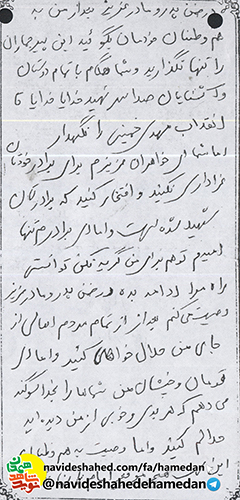 و من پدر و مادر عزیزم دیدار من به
هم وطنان عزیزمان بگوئید این پیر جماران
را تنها نگذارید و شما هنگام با تمام دوستان
و آشنایان صدا می زنید خدایا خدایا تا
انقلاب مهدی خمینی را نگهدار
اما شما ای خواهران عزیزم برای برادر خودتان
عزاداری نکنید و افتخار کنید که برادرتان
شهید شده است و اما ای برادرم تنها
امیدم تو هم برای من گریه نکن توانستی
راه مرا ادامه بده و در ضمن پدر و مادر عزیز
وصیت می کنم بعد از من از تمام مردم اهالی از
جای من حلال خواهی کنید و اما ای
قومان و خویشان من شما را بخدا سوگند
می دهم که هر بدی و خوبی از من دیده اید
حلالم کنید و اما وصیت به هم وطنان
این
navideshahed.com/fa/hamedan
@navideshahedehamedan